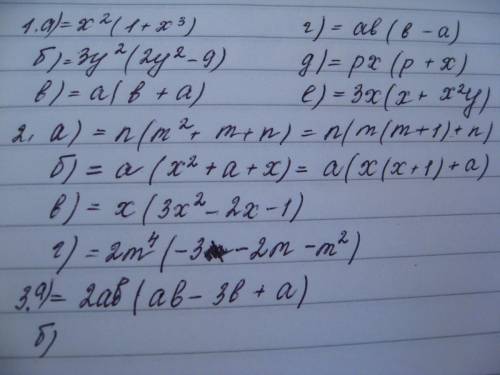 1.а)= x²(1+x³)
б)=3y²(2y²-9)
в)= a(b+a)
г)= ab(b-a)
д)= px(p+x)
е)=3x(x+x²y)
2. а) = n(m²+m+n)= n(m(m+1)+n)
б) = a(x²+a+x)= a(x(x+1)+a)
в) = x(3x²-2x-1)
г)=2m⁴(-3-2m-m²)
3.а)= 2ab(ab-3b+a)
б)